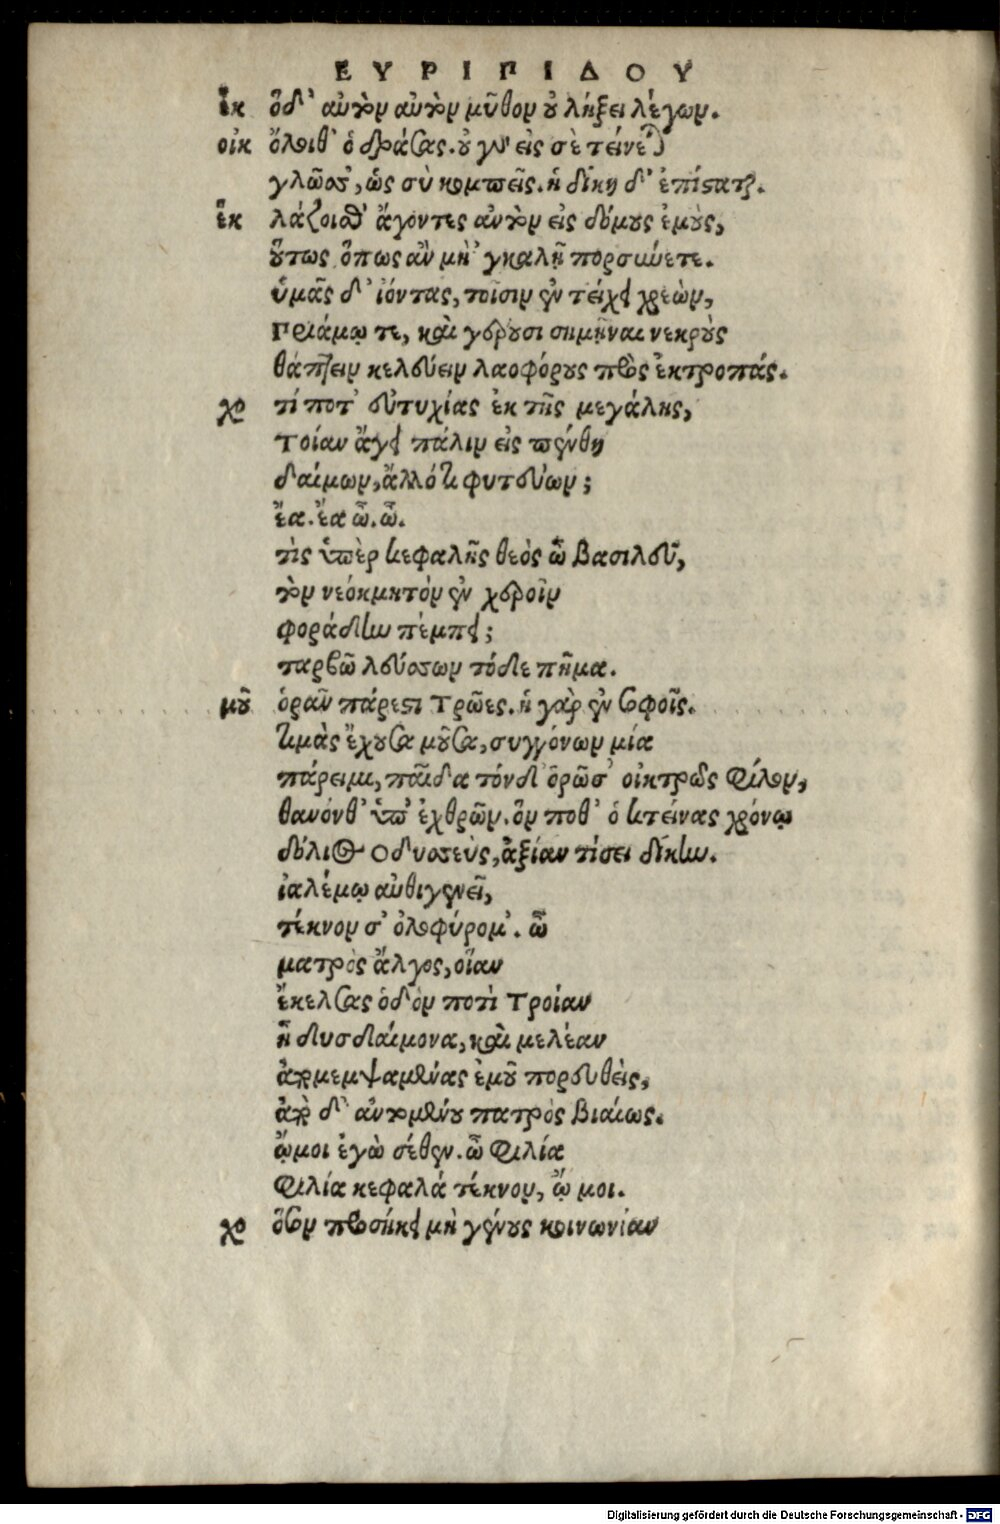 ΕΥΡΙΠΙΔΟΥ
ἕκ ὅδ' αὐτὸν αὐτὸν μῦθον οὐ λήξει λέγων.
οἰκ ὄλοιθ' ὁ δράσας. οὐ γὰρ εἰς σὲ τείνεται
γλῶσσ', ὡς σὺ κομπεῖς. ἡ δίκη δ' ἐπίσταται.
ἕκ λάζοισθ' ἄγοντες αὐτὸν εἰς δόμους ἐμοὺς,
οὕτως ὅπως ἂν μὴ' γκαλῇ πορσύνετε.
ὑμᾶς δ' ἰόντας, τοῖσιν ἐν τείχει χρεὼν,
Πριάμῳ τε, καὶ γέρουσι σημῆναι νεκροὺς
θάπτειν κελεύειν λαοφόρους πρὸς ἐκτροπάς.
χο τί ποτ' εὐτυχίας ἐκ τῆς μεγάλης,
Τροίαν ἄγει πάλιν εἰς πένθη
δαίμων, ἄλλό τι φυτεύων;
ἔα. ἔα ὦ. ὦ.
τὶς ὑπὲρ κεφαλῆς θεὸς ὦ βασιλεῦ,
τὸν νεόκμητόν ἐν χεροῖν
φοράδην πέμπει;
ταρβῶ λεύσσων τόδε πῆμα.
μοῦ ὁρᾶν πάρεστι Τρῶες. ἡ γὰρ ἐν σοφοῖς.
τιμὰς ἔχουσα μοῦσα, συγγόνων μία
πάρειμι, παῖδα τόνδ' ὁρῶσ' οἰκτρῶς φίλον,
θανόνθ' ὑπ' ἐχθρῶν. ὃν ποθ' ὁ κτείνας χρόνῳ
δόλιος Οδυσσεὺς, ἀξίαν τίσει δίκην.
ἰαλέμῳ αὐθιγενεῖ,
τέκνον σ' ὀλοφύρομ'. ὦ
ματρὸς ἄλγος, οἵαν
ἔκελσας ὁδὸν ποτὶ Τροίαν
ἦ δυσδαίμονα, καὶ μελέαν
ἀπομεμψαμένας ἐμοῦ πορευθεὶς,
ἀπὸ δ' ἀντομένου πατρὸς βιαίως.
ᾤμοι ἐγὼ σέθεν. ὦ φιλία
φιλία κεφαλά τέκνον, ᾤ μοι.
χο ὅσον προσήκει μὴ γένους κοινωνίαν
Digitalisierung gefördert durch die Deutsche Forschungsgemeinschaft - DFG